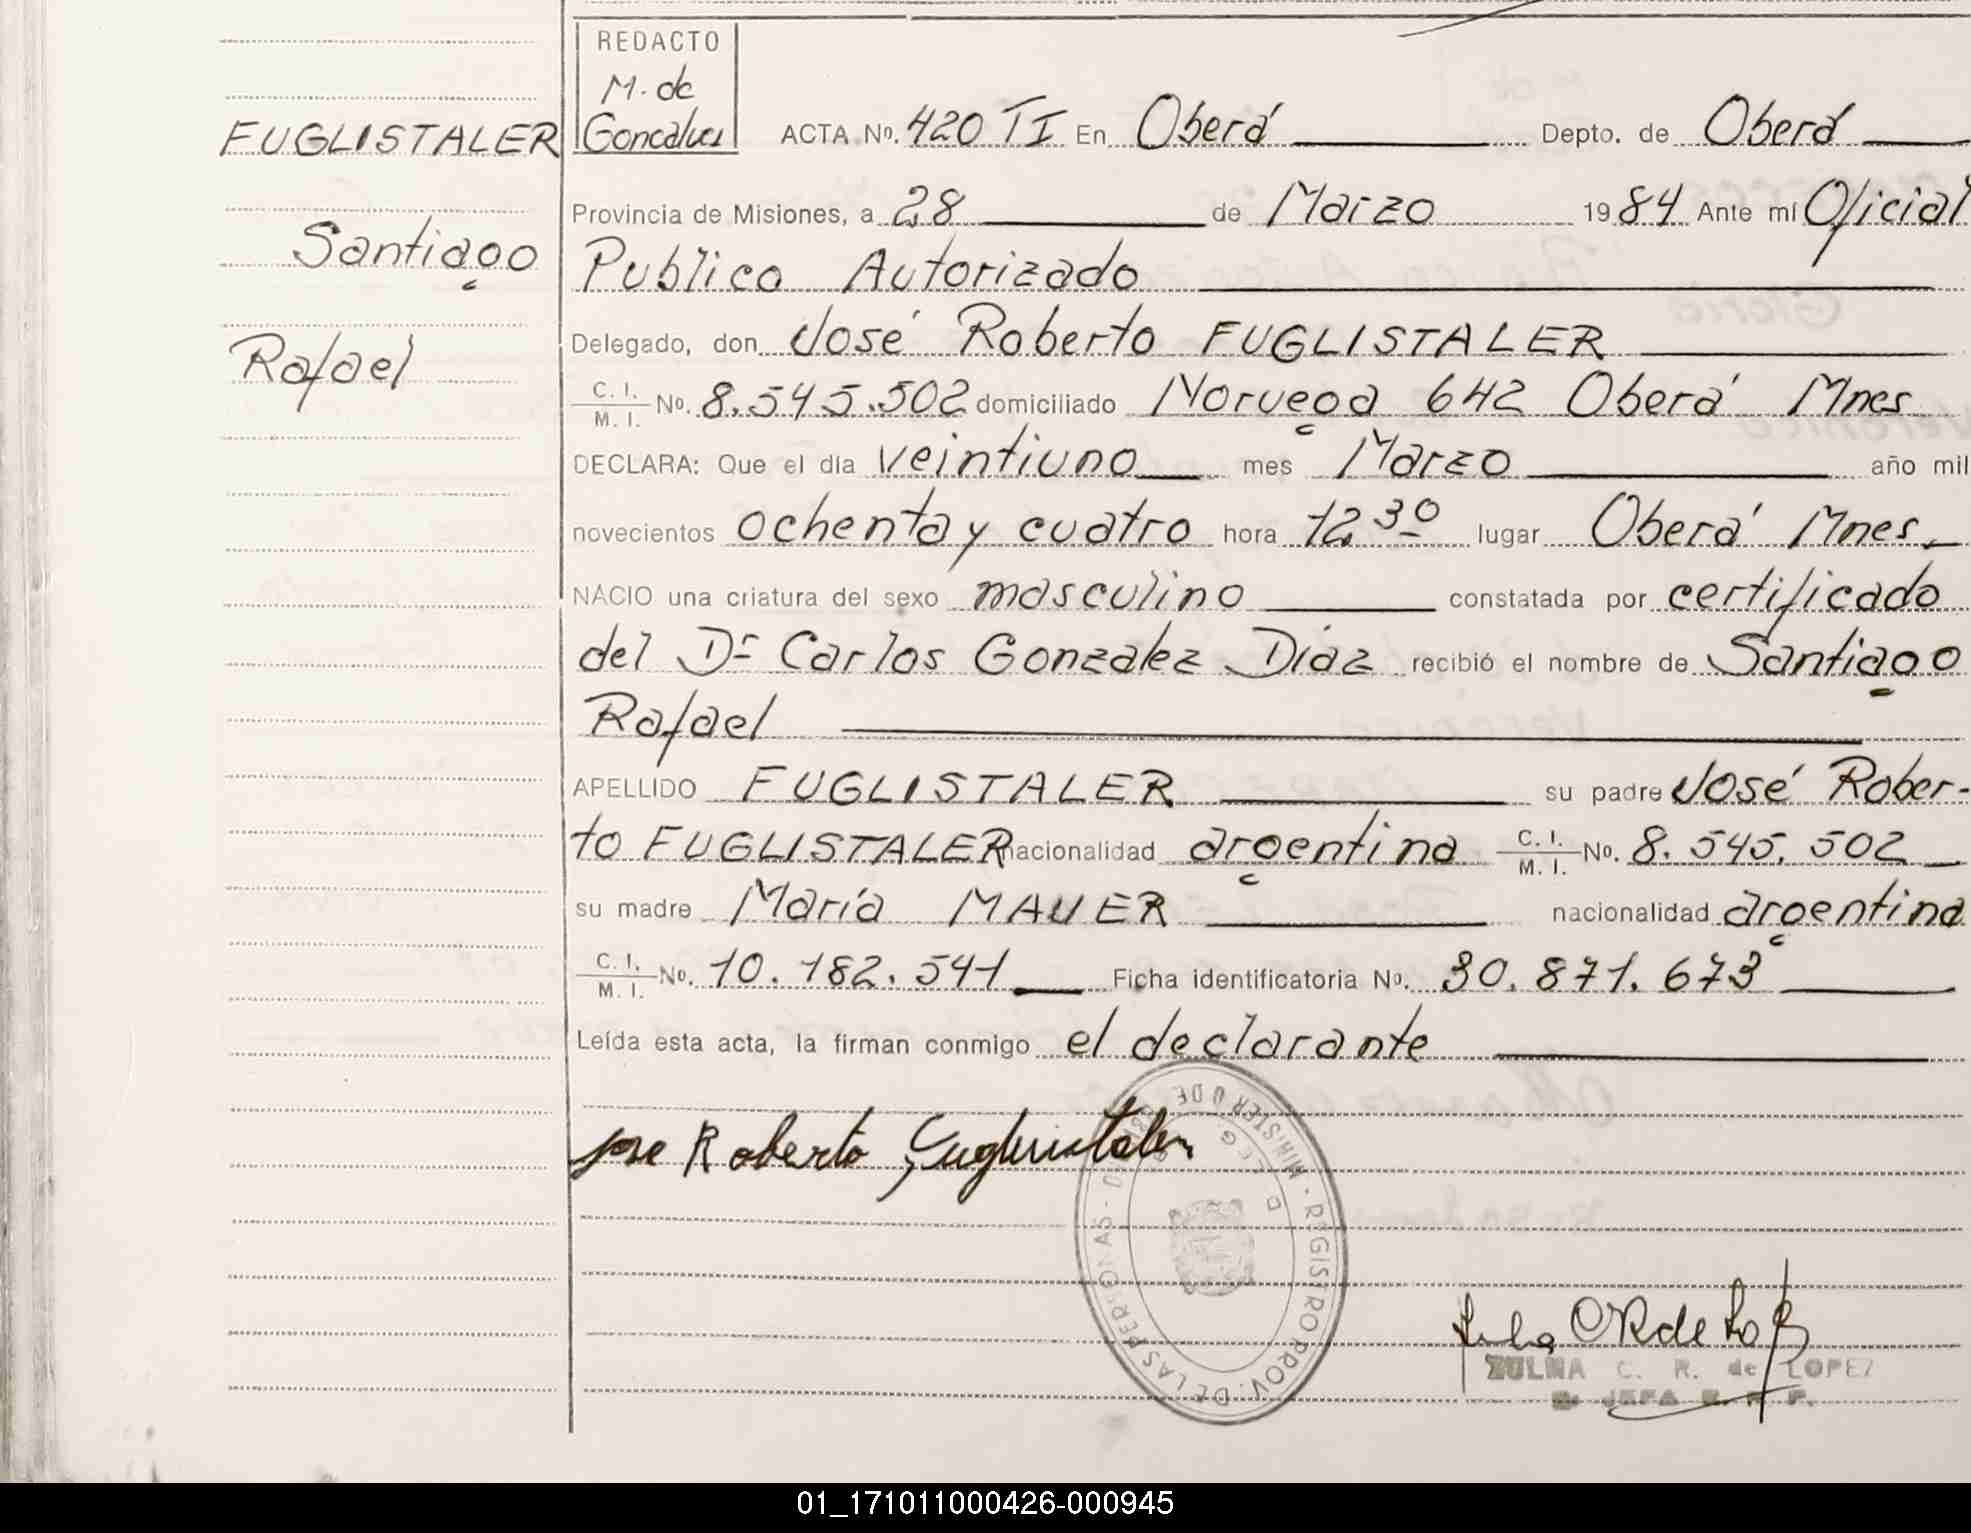 REDACTO
M. de
Goncalves
FUGLISTALER
Santiago
Rafael
ACTA No. 420 TI En Oberá Depto. de Oberá
Provincia de Misiones, a 28 de Marzo 1984 Ante mí Oficial
Publico Autorizado
Delegado, don José Roberto FUGLISTALER
C. I. M. I. No. 8.545.502 domiciliado Noruega 642 Oberá Mnes
DECLARA: Que el día veintiuno mes Marzo año mil
novecientos ochenta y cuatro hora 12 30 lugar Oberá Mnes
NACIO una criatura del sexo masculino constatada por certificado
del Dr Carlos Gonzalez Díaz recibió el nombre de Santiago
Rafael
APELLIDO FUGLISTALER su padre José Rober-
to FUGLISTALER nacionalidad argentina C. I. M. I. No. 8. 545. 502
su madre María MAUER nacionalidad argentina
C. I. M. I. No. 10. 182. 541 Ficha identificatoria No. 30. 871. 673
Leída esta acta, la firman conmigo el declarante
Jose Roberto Fuglistaler
MINISTERIO DE GOBIERNO - REGISTRO PROV. DE LAS PERSONAS
ZULMA C. R. de LOPEZ
JEFA
01_171011000426-000945